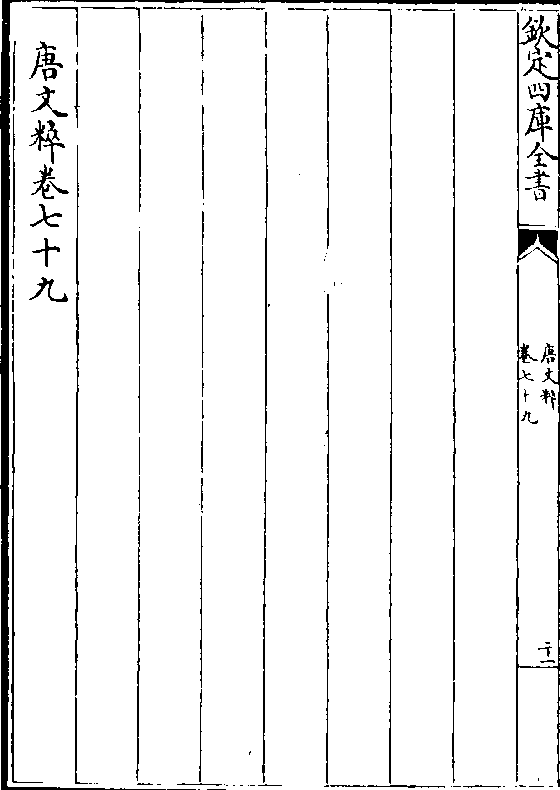 欽定四庫全書
唐文粹
卷七十九
二十一
唐文粹卷七十九